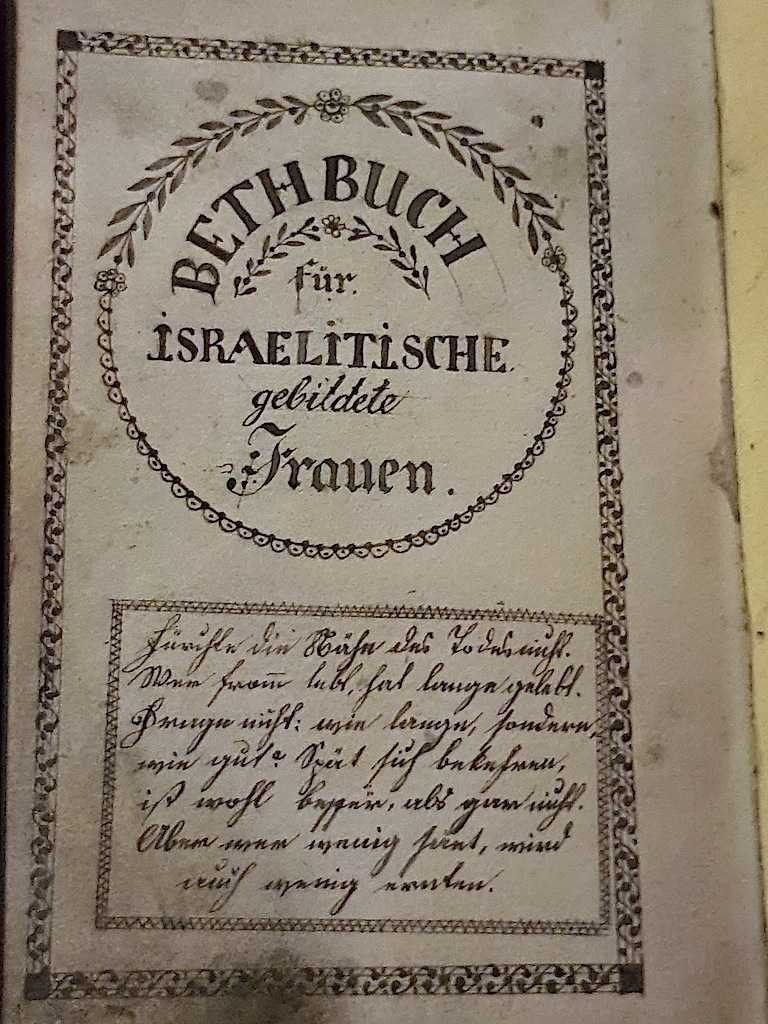 BETHBUCH
für
ISRAELITISCHE
gebildete
Frauen.
Fürchte die Nähe des Todes nicht.
Wer from̅ lebt, hat lange gelebt.
Frage nicht: wie lange, sondern,
wie gut? Spät sich bekehren,
ist wohl besser, als gar nicht.
Aber wer wenig säet, wird
auch wenig ernten.